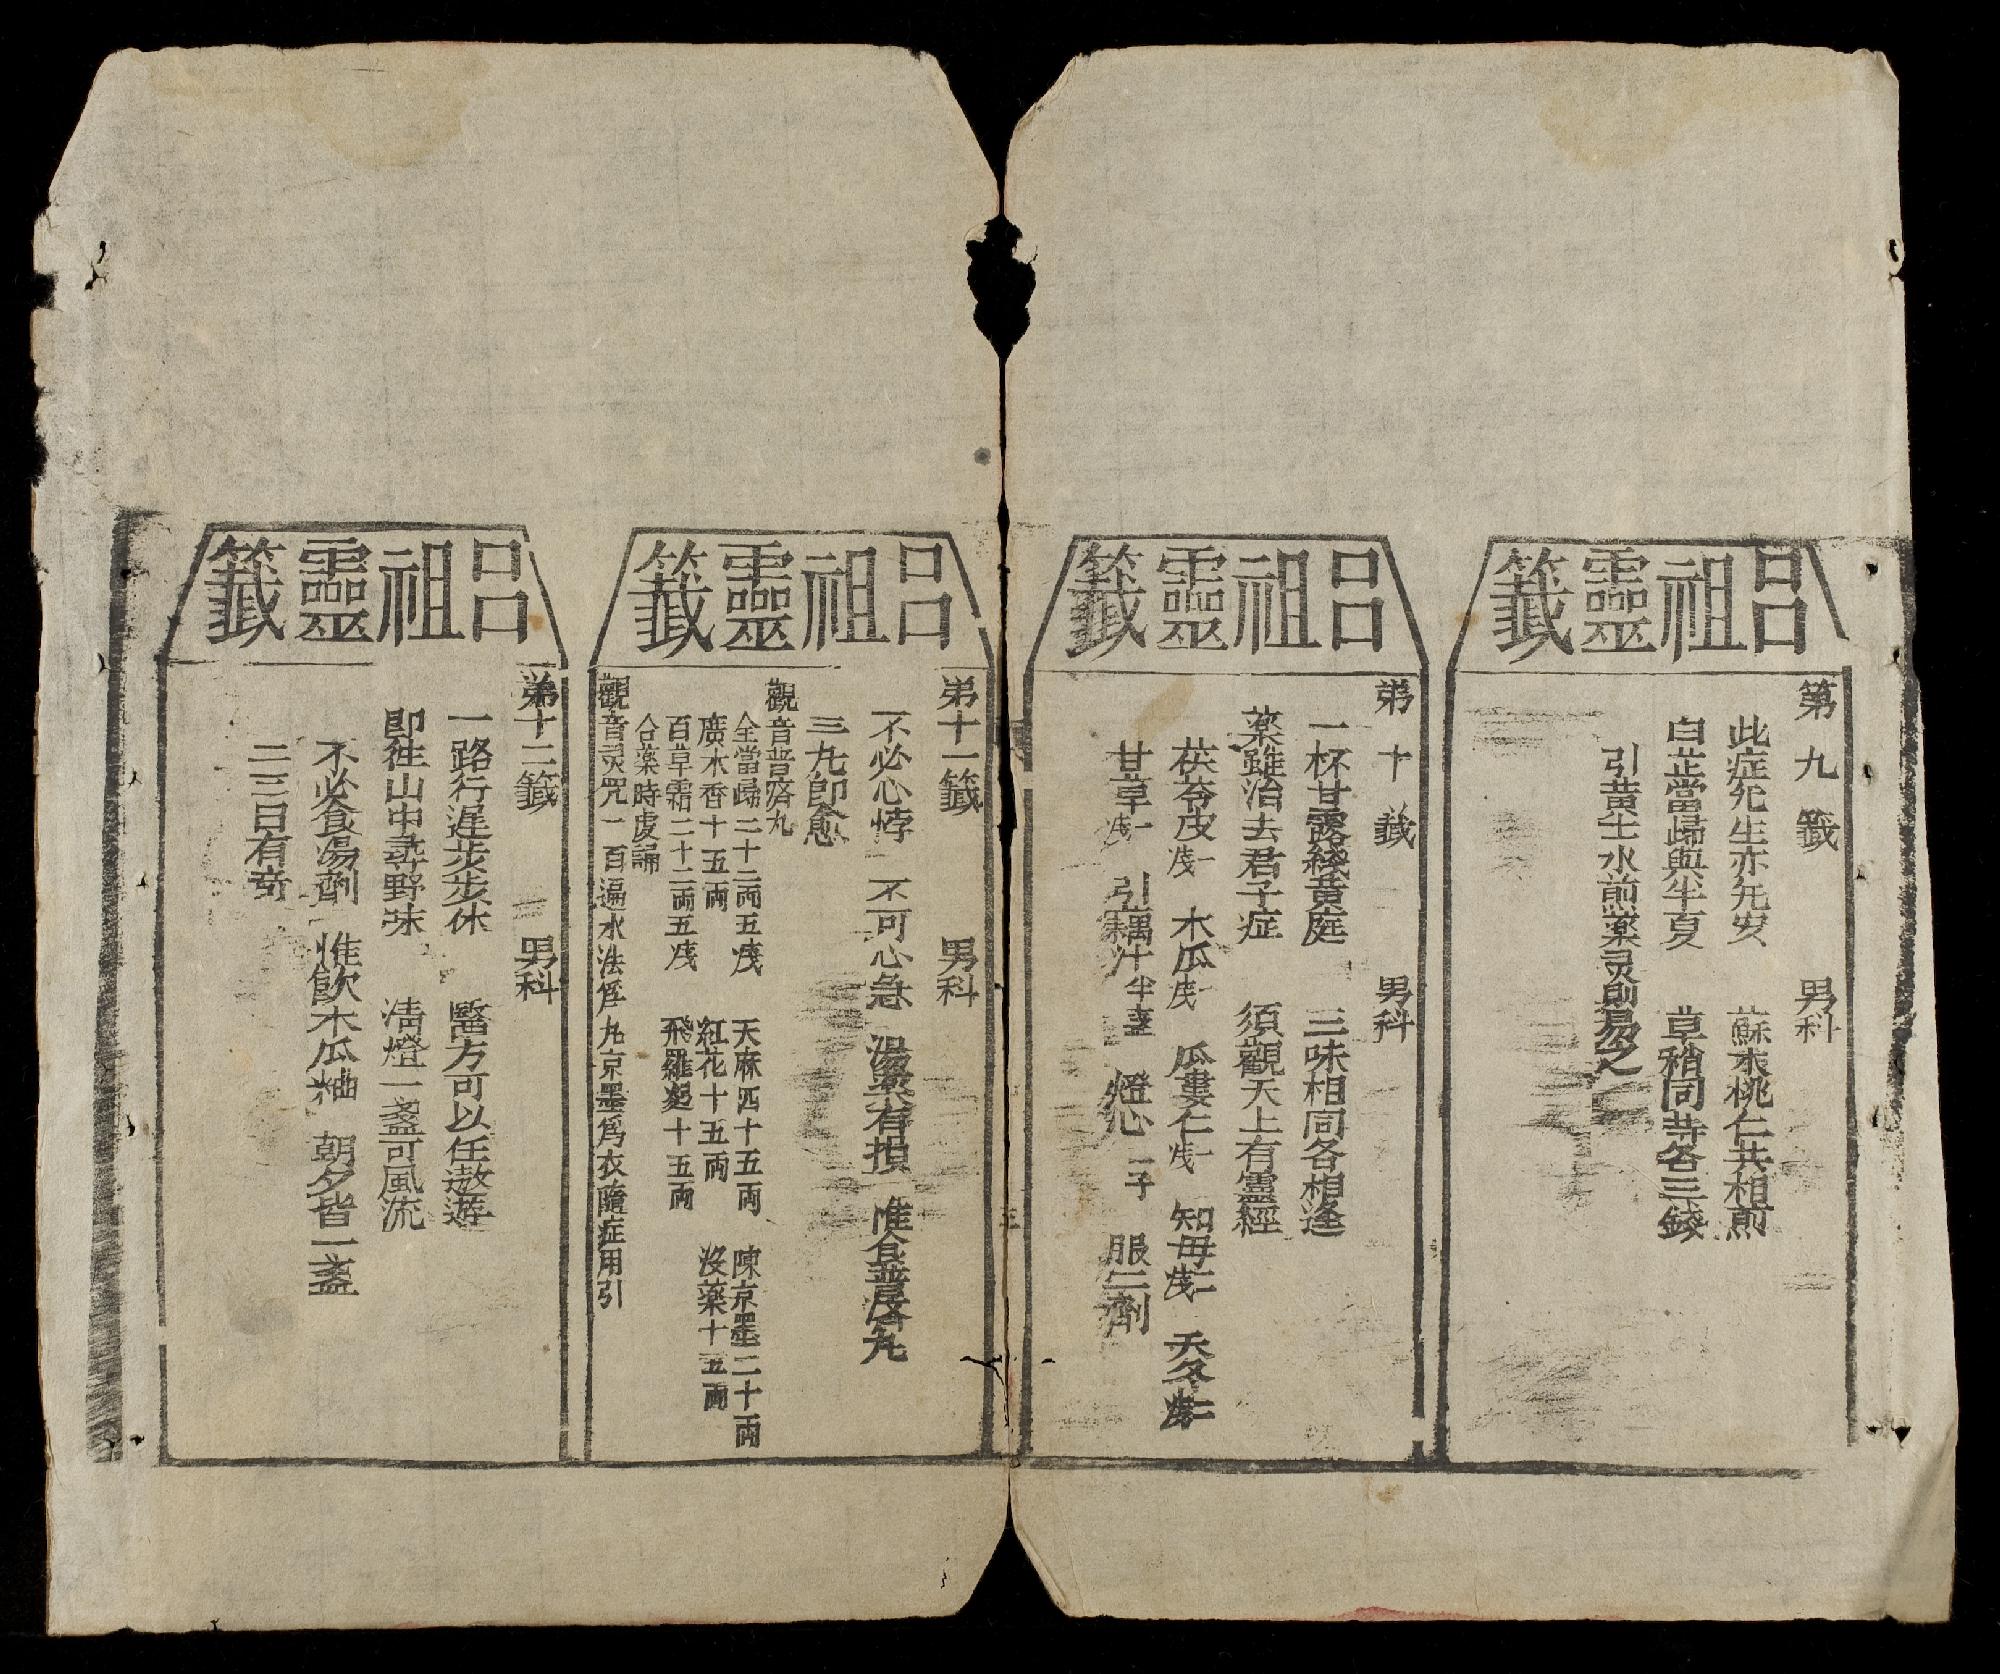 呂祖靈籤
第九籤 男科
此症先生亦先安 蘇木桃仁共相煎
白芷當歸與半夏 草稍同等各三錢
引黃土水煎藥灵則易之
呂祖靈籤
第十籤 男科
一杯甘露綫黃庭 三味相同各相逢
薬雖治去君子症 須觀天上有靈經
茯苓皮一戋 木瓜一戋 瓜蔞仁一戋 知母二戋 天冬二戋
甘草一戋 引藕汁半盞 燈心一子 服二劑
呂祖靈籤
弟十一籤 男科
不必心悖 不可心急 湯藥有損 惟食普济丸
三九即愈
觀音普济丸
全當歸二十二両五戋 天麻四十五両 陳京墨二十両
廣木香十五両 紅花十五両 沒薬十五両
百草霜二十二両五戋 飛羅麪十五両
合薬時虔誦
觀音灵咒一百遍水法為丸京墨為衣隨症用引
呂祖靈籤
弟十二籤 男科
一路行遲步步休 醫方可以任遨遊
即徃山中尋野味 清燈一盞可風流
不必食湯劑 惟飲木瓜柚 朝夕皆一盞
二三日有竒
三